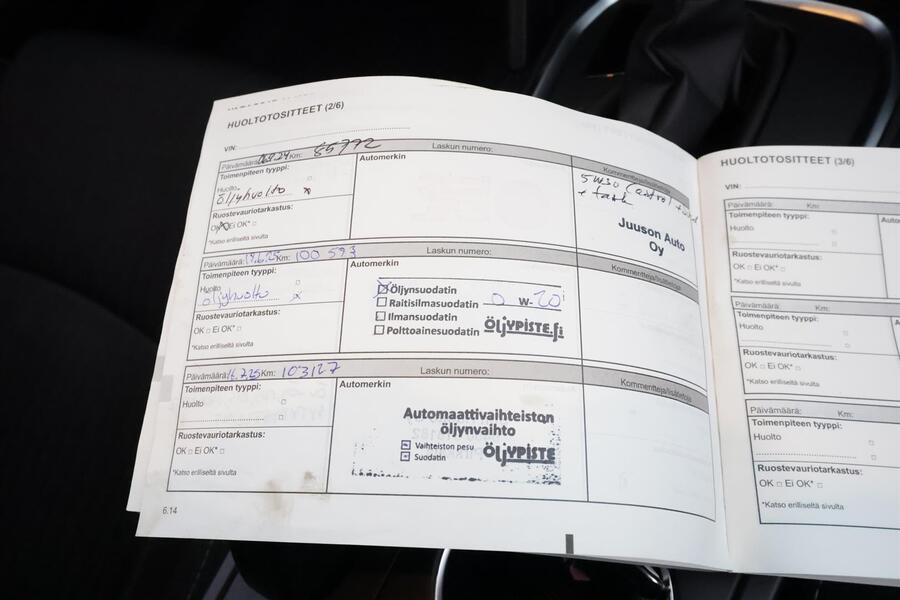 HUOLTOTOSITTEET (2/6)
VIN:
Päivämäärä: Km: 85772 Laskun numero: Kommentteja/lisätietoja
Toimenpiteen tyyppi: Automerkin
Huolto
öljyhuolto x
Ruostevauriotarkastus:
OK Ei OK*
*Katso erilliselta sivulta
5W30
Juuson Auto
Oy
Päivämäärä: Km: 100 593 Laskun numero: Kommentteja/lisätietoja
Toimenpiteen tyyppi: Automerkin
Huolto
öljyhuolto x
Ruostevauriotarkastus:
OK Ei OK*
*Katso erilliselta sivulta
Öljynsuodatin
Raitisilmasuodatin 0 W-20
Ilmansuodatin
Polttoainesuodatin ÖLJYPISTE.fi
Päivämäärä: 16.7.25 Km: 103127 Laskun numero: Kommentteja/lisätietoja
Toimenpiteen tyyppi: Automerkin
Huolto
Ruostevauriotarkastus:
OK Ei OK*
*Katso erilliselta sivulta
Automaattivaihteiston
öljynvaihto
Vaihteiston pesu
Suodatin ÖLJYPISTE
6.14
HUOLTOTOSITTEET (3/6)
VIN:
Päivämäärä: Km:
Toimenpiteen tyyppi:
Huolto
Ruostevauriotarkastus:
OK Ei OK*
*Katso erilliselta sivulta
Päivämäärä: Km:
Toimenpiteen tyyppi:
Huolto
Ruostevauriotarkastus:
OK Ei OK*
*Katso erilliselta sivulta
Päivämäärä: Km:
Toimenpiteen tyyppi:
Huolto
Ruostevauriotarkastus:
OK Ei OK*
*Katso erilliselta sivulta